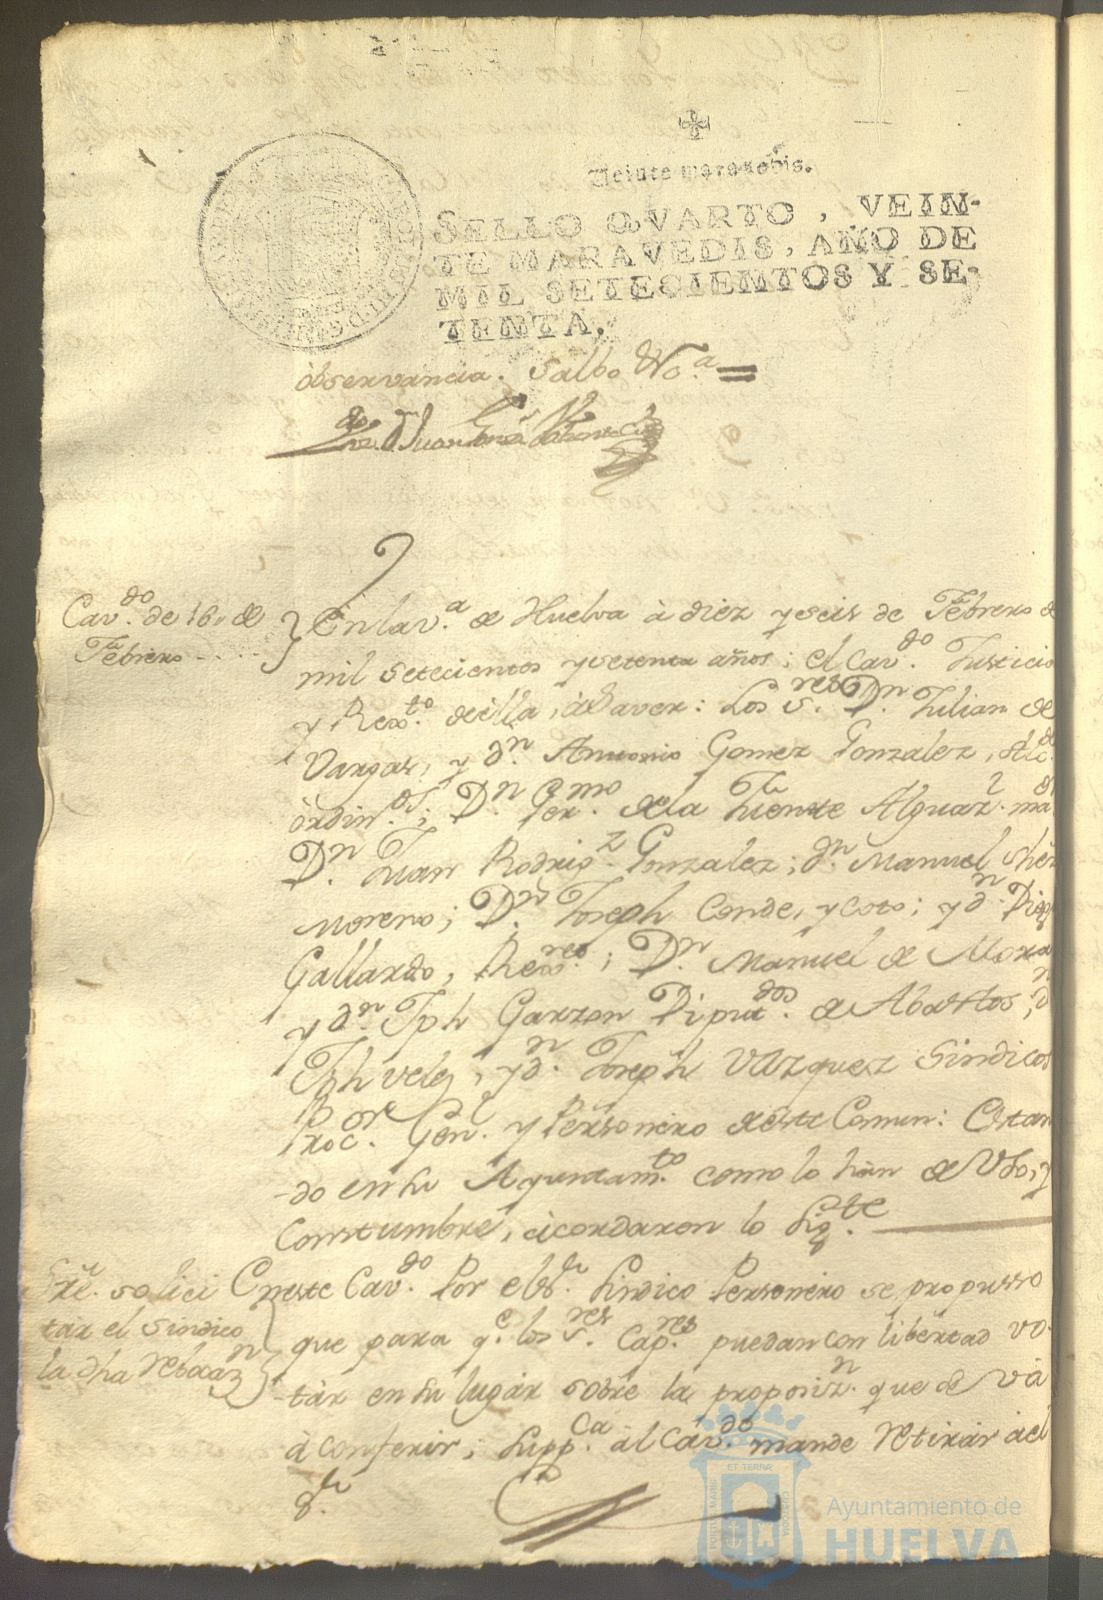 Veinte maravedis.
SELLO QVARTO, VEIN-
TE MARAVEDIS, AÑO DE
MIL SETECIENTOS Y SE-
TENTA.
observancia. Salbo
Juan
Cav.do de 16. de
Febrero
En la v.a de Huelva à diez y seis de Febrero de
mil setecientos y setenta años; el Cav.do Justicia
y Rex.to de ella, à Saver: Los S.res D.n Julian de
Vargas, y d.n Antonio Gomez Gonzalez, Alc.des
òrdin.os; D.n Ger.mo de la Fuente Alguaz.l ma.or
D.n Juan Rodrig.z Gonzalez; d.n Manuel Shez
Moreno; D.n Joseph Conde, y Coto; y d.n Dieg
Gallardo, Rex.res; D.n Manuel de Mora
y d.n Jph Garzon Diput.dos de Abastos; d.n
Jph Velez, y d.n Joseph Vazquez Sindicos
Proc.or Gen.l y Personero de este Comun: Estan
-do en su Ayuntam.to como lo han de Uso, y
Constumbre, àcordaron lo sig.te
Sre. solici
tar el Sindico
la dha rebocaz.n
En este Cav.do Por el S.r Sindico Personero se propusso
que para q.e los S.res Cap.res puedan con libertad vo-
-tàr en su lugàr sobre la proposiz.n que se và
à conferir, supp.ca àl Cav.do mande retiràr àel
S.r
ET TERRÆ
Ayuntamiento de
HUELVA